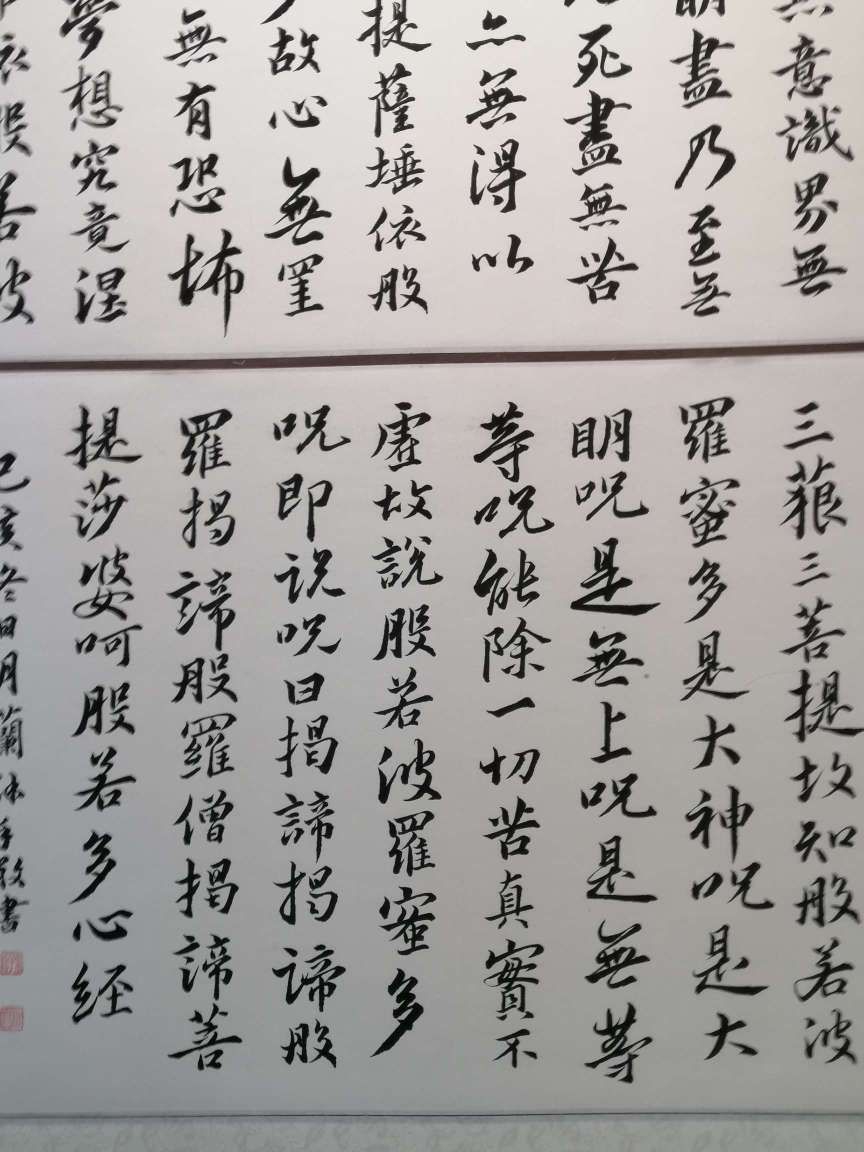 無意識界無
明盡乃至無
死盡無苦
亦無得以
提薩埵依般
故心無罣
無有恐怖
夢想究竟涅
依般若波
三藐三菩提故知般若波
羅蜜多是大神呪是大
明呪是無上呪是無等
等呪能除一切苦真實不
虛故說般若波羅蜜多
呪即说呪曰揭諦揭諦般
羅揭諦般羅僧揭諦菩
提莎婆呵般若多心経
己亥冬日月蘭
書